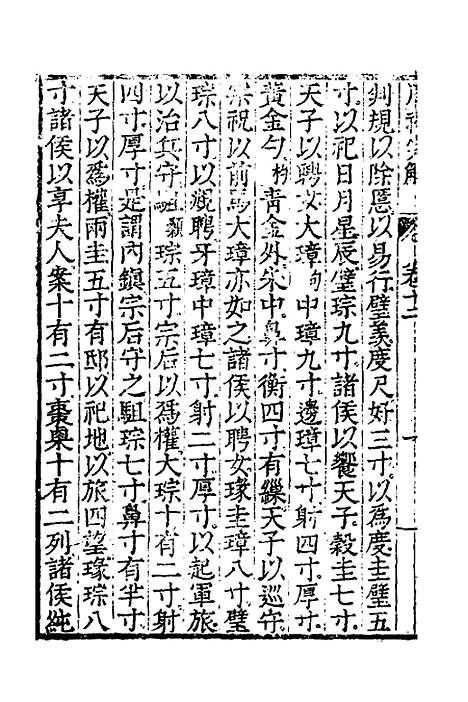 解 卷十二
判規以除慝以易行璧羨度尺好三寸以為度圭璧五
寸以祀日月星辰璧琮九寸諸侯以饗天子穀圭七寸
天子以聘女大璋中璋九寸邊璋七寸射四寸厚寸
黃金勺杓青金外朱中鼻寸衡四寸有繅天子以巡守
宗祝以前馬大璋亦如之諸侯以聘女瑑圭璋八寸璧
琮八寸以覜聘牙璋中璋七寸射二寸厚寸以起軍旅
以治兵守駔琮五寸宗后以爲權大琮十有二寸射
四寸厚寸是謂內鎮宗后守之駔琮七寸鼻寸有半寸
天子以爲權兩圭五寸有邸以祀地以旅四望瑑琮八
寸諸侯以享夫人案十有二寸棗㮚十有二列諸侯純